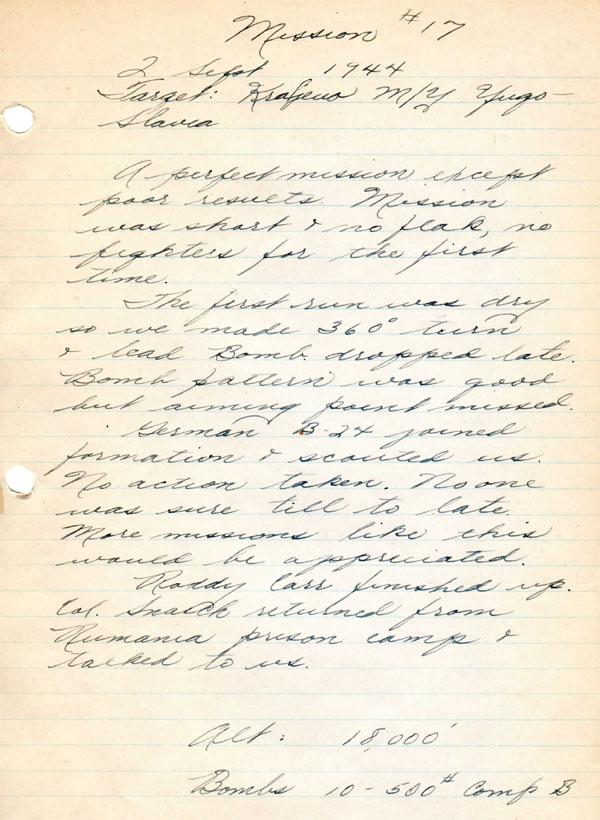 Mission #17
2 Sept 1944
Target: Kraljeuo M/Y Yugo-
Slavia
A perfect mission except
poor results. Mission
was short & no flak, no
fighters for the first
time.
The first run was dry
so we made 360° turn
& lead Bomb. dropped late.
Bomb pattern was good
but aiming point missed.
German B-24 joined
formation & scouted us.
No action taken. No one
was sure till to late.
More missions like this
would be appreciated.
Roddy Carr finished up.
Col. Snaith returned from
Rumania prison camp &
talked to us.
Alt: 18,000'
Bombs 10-500# Comp B